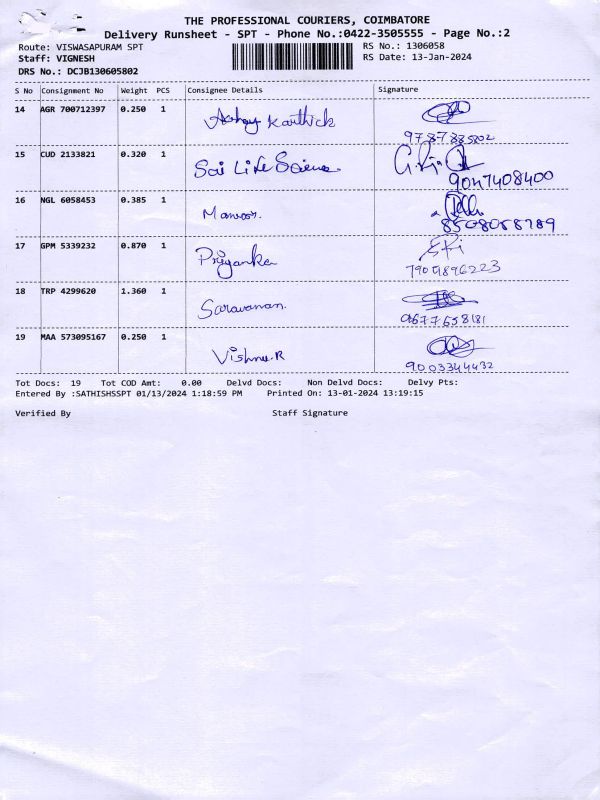 THE PROFESSIONAL COURIERS, COIMBATORE
Delivery Runsheet - SPT - Phone No.:0422-3505555 - Page No.:2
Route: VISWASAPURAM SPT
RS No.: 1306058
Staff: VIGNESH
RS Date: 13-Jan-2024
DRS No.: DCJB130605802
S No Consignment No Weight PCS Consignee Details Signature
14 AGR 700712397 0.250 1 Karthick
9787885802
15 CUD 2133821 0.320 1 Sai Life Science
9047408400
16 NGL 6058453 0.385 1
8508058789
17 GPM 5339232 0.870 1 Priyanka
7901896223
18 TRP 4299620 1.360 1 Saravanan.
9677658181
19 MAA 573095167 0.250 1 Vishnu.R
9003344432
Tot Docs: 19 Tot COD Amt: 0.00 Delvd Docs: Non Delvd Docs: Delvy Pts:
Entered By :SATHISHSSPT 01/13/2024 1:18:59 PM Printed On: 13-01-2024 13:19:15
Verified By Staff Signature